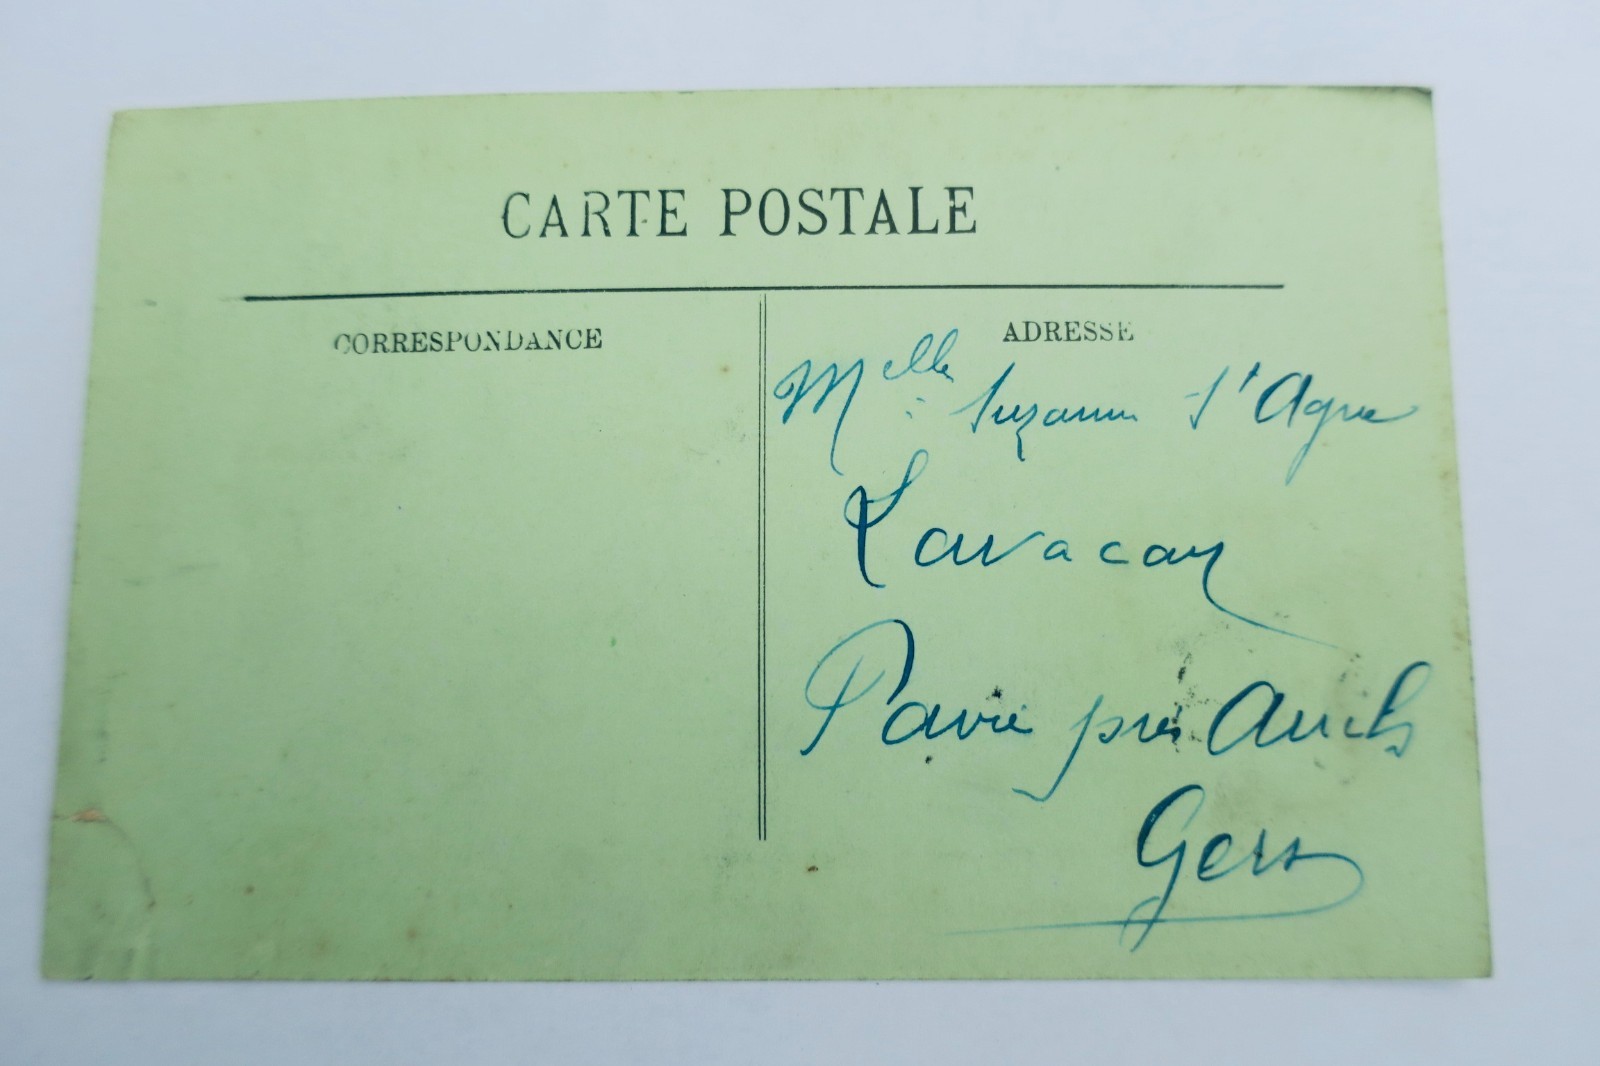 CARTE POSTALE
CORRESPONDANCE
ADRESSE
Melle Suzanne St Agne
Lavacan
Pavie près Auch
Gers